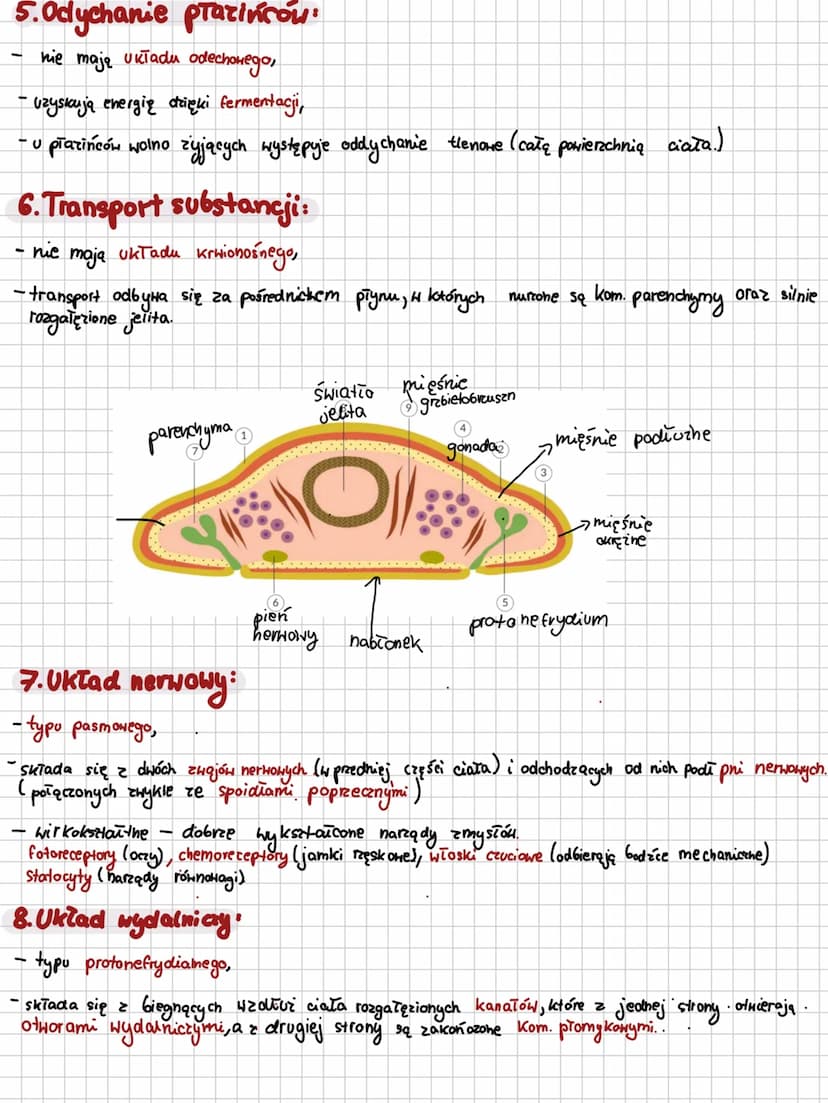 5. Odychanie płazińców:
- nie mają układu odechowego,
- uzyskują energię dzięki fermentacji,
- u płazińców wolno żyjących występuje oddychanie tlenowe (całą powierzchnią ciała.)
6. Transport substancji:
- nie mają układu krwionośnego,
- transport odbywa się za pośrednictwem płynu, w których nurzone są kom. parenchymy oraz silnie
rozgałęzione jelita.
światło
jelita
mięśnie
9 grzbietobrzuszn
parenchyma 1
7
4
gonada 2
mięśnie podłużne
3
mięśnie
okrężne
6
5
pień
nerwowy
nabłonek
protonefrydium
7. Układ nerwowy:
- typu pasmowego,
- składa się z dwóch zwojów nerwowych (w przedniej części ciała) i odchodzących od nich podł pni nerwowych.
(połączonych zwykle ze spoidłami poprzecznymi)
- wirkokształtne - dobrze wykształcone narządy zmysłów.
fotoreceptory (oczy), chemoreceptory (jamki rzęskowe), włoski czuciowe (odbierają bodźce mechaniczne)
statocyty (narządy równowagi)
8. Układ wydalniczy:
- typu protonefrydialnego,
- składa się z biegnących wzdłuż ciała rozgałęzionych kanałów, które z jednej strony otwierają
otworami wydalniczymi, a z drugiej strony są zakończone kom. płomykowymi.